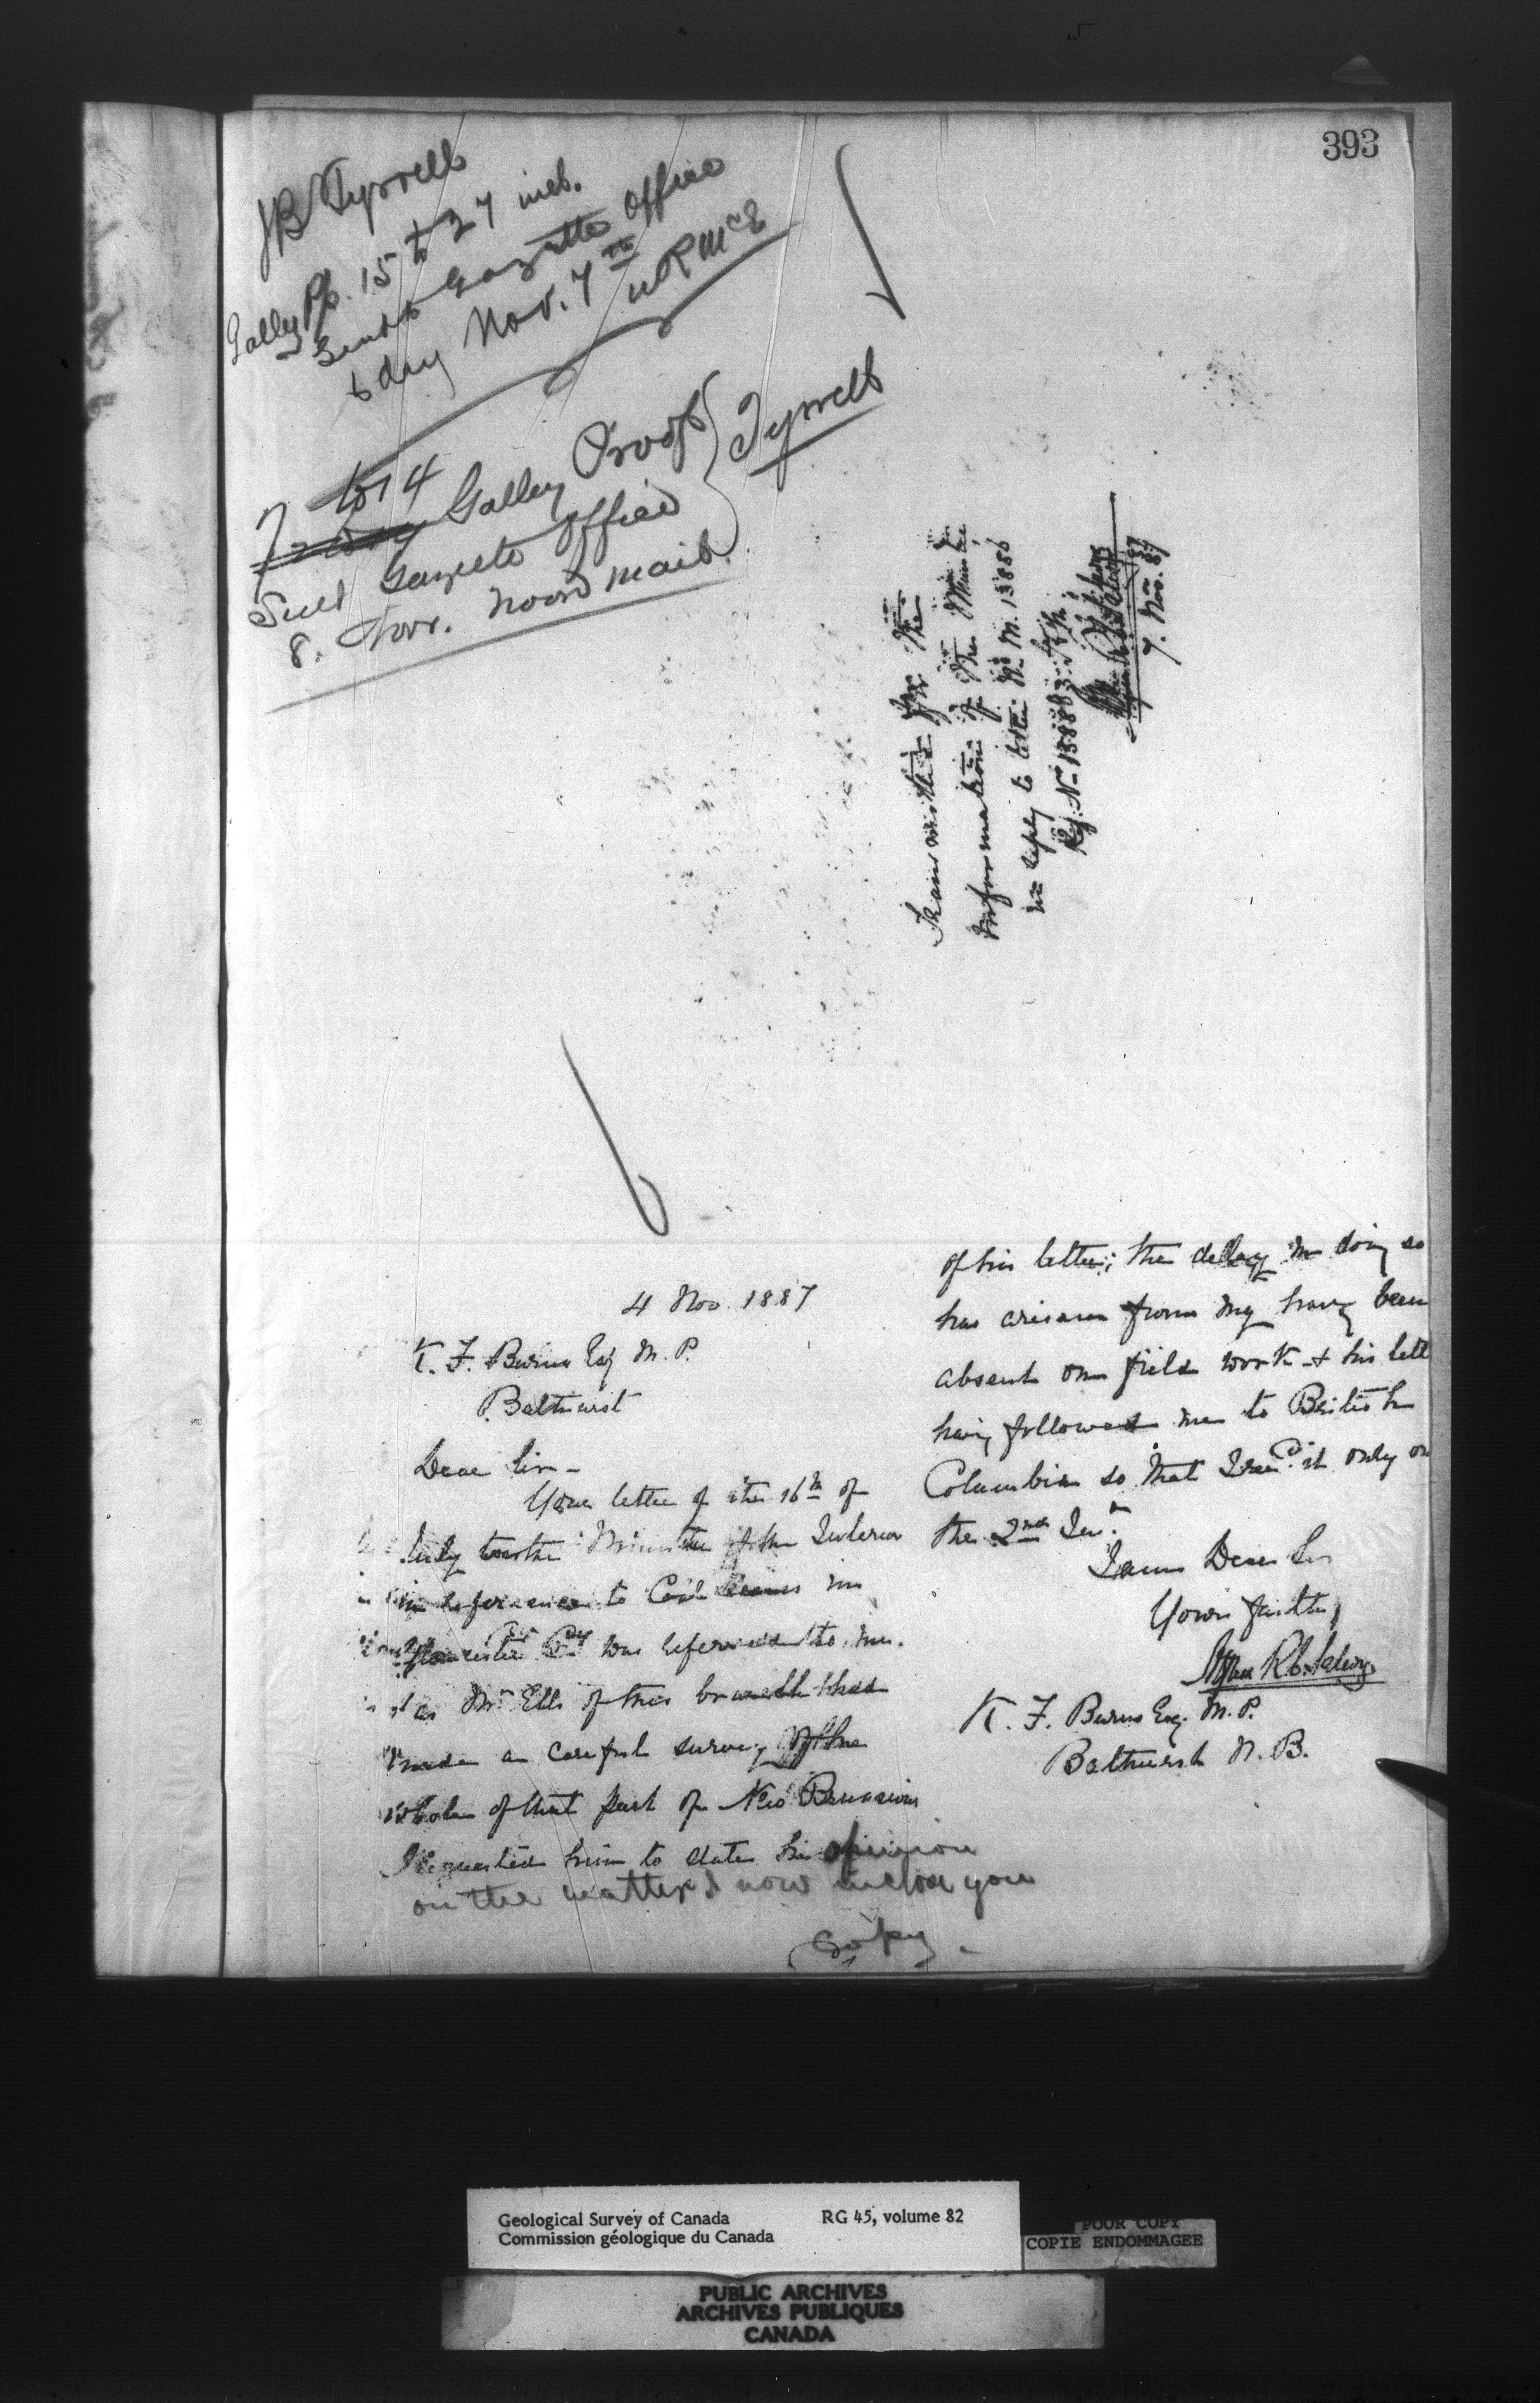 393
JB Tyrrell
Galley Pp. 15 to 27 incl.
Sent to Gazette Office
to day Nov. 7th
to 14
Galley Proof
Sent Gazette Office
8. Nov. noon mail.
Tyrrell
Transmitted for the
information of the Minister
in reply to letter No M. 13886
Reg. No 13886
7. Nov. 87
4 Nov 1887
K. F. Burns Esq M. P.
Bathurst
Dear Sir -
Your letter of the 16th of
July to the Minister of the Interior
in reference to Coal Seams in
Gloucester Cy was referred to me.
as Mr Ells of this branch had
made a careful survey of the
whole of that part of New Brunswick
I requested him to state his opinion
on the matter & now inclose you
Copy -
of his letter; the delay in doing so
has arisen from my having been
absent on field work & his lett
having followed me to British
Columbia so that I recd it only on
the 2nd Inst
I am Dear Sir
Yours faithy
Alfred R. C. Selwyn
K. F. Burns Esq. M. P.
Bathurst N. B.
Geological Survey of Canada
Commission géologique du Canada
RG 45, volume 82
POOR COPY
COPIE ENDOMMAGEE
PUBLIC ARCHIVES
ARCHIVES PUBLIQUES
CANADA